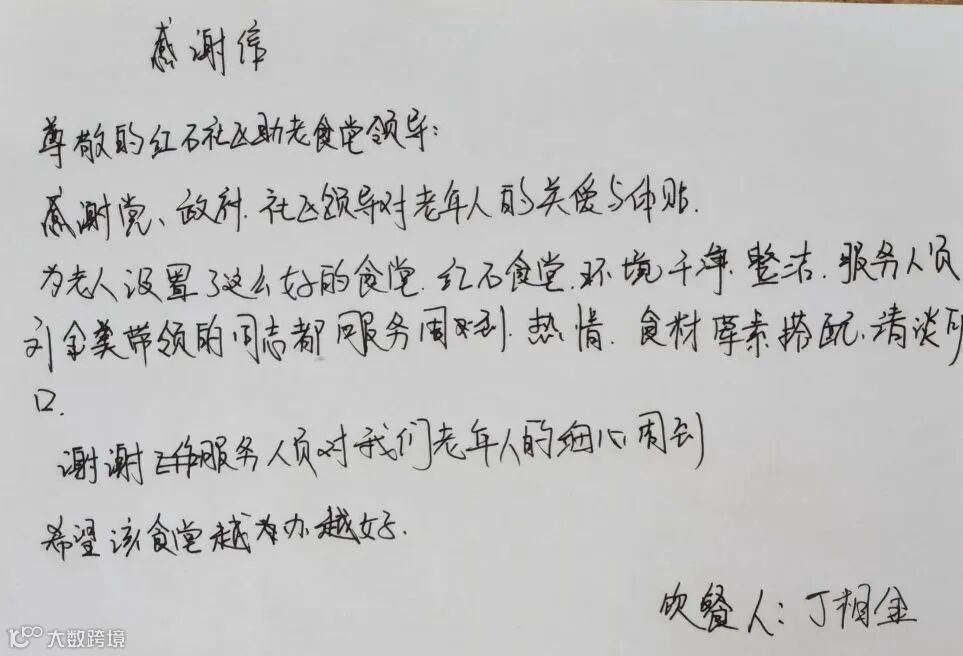 感谢信
尊敬的红石社区助老食堂领导:
感谢党、政府.社区领导对老年人的关爱与体贴.
为老人设置了这么好的食堂.红石食堂.环境干净.整洁.服务人员
刘金美带领的同志都服务周到.热情.食材荤素搭配.清淡可
口.
谢谢服务人员对我们老年人的细心周到
希望该食堂越办越好.
饮餐人:丁相金
大数跨境